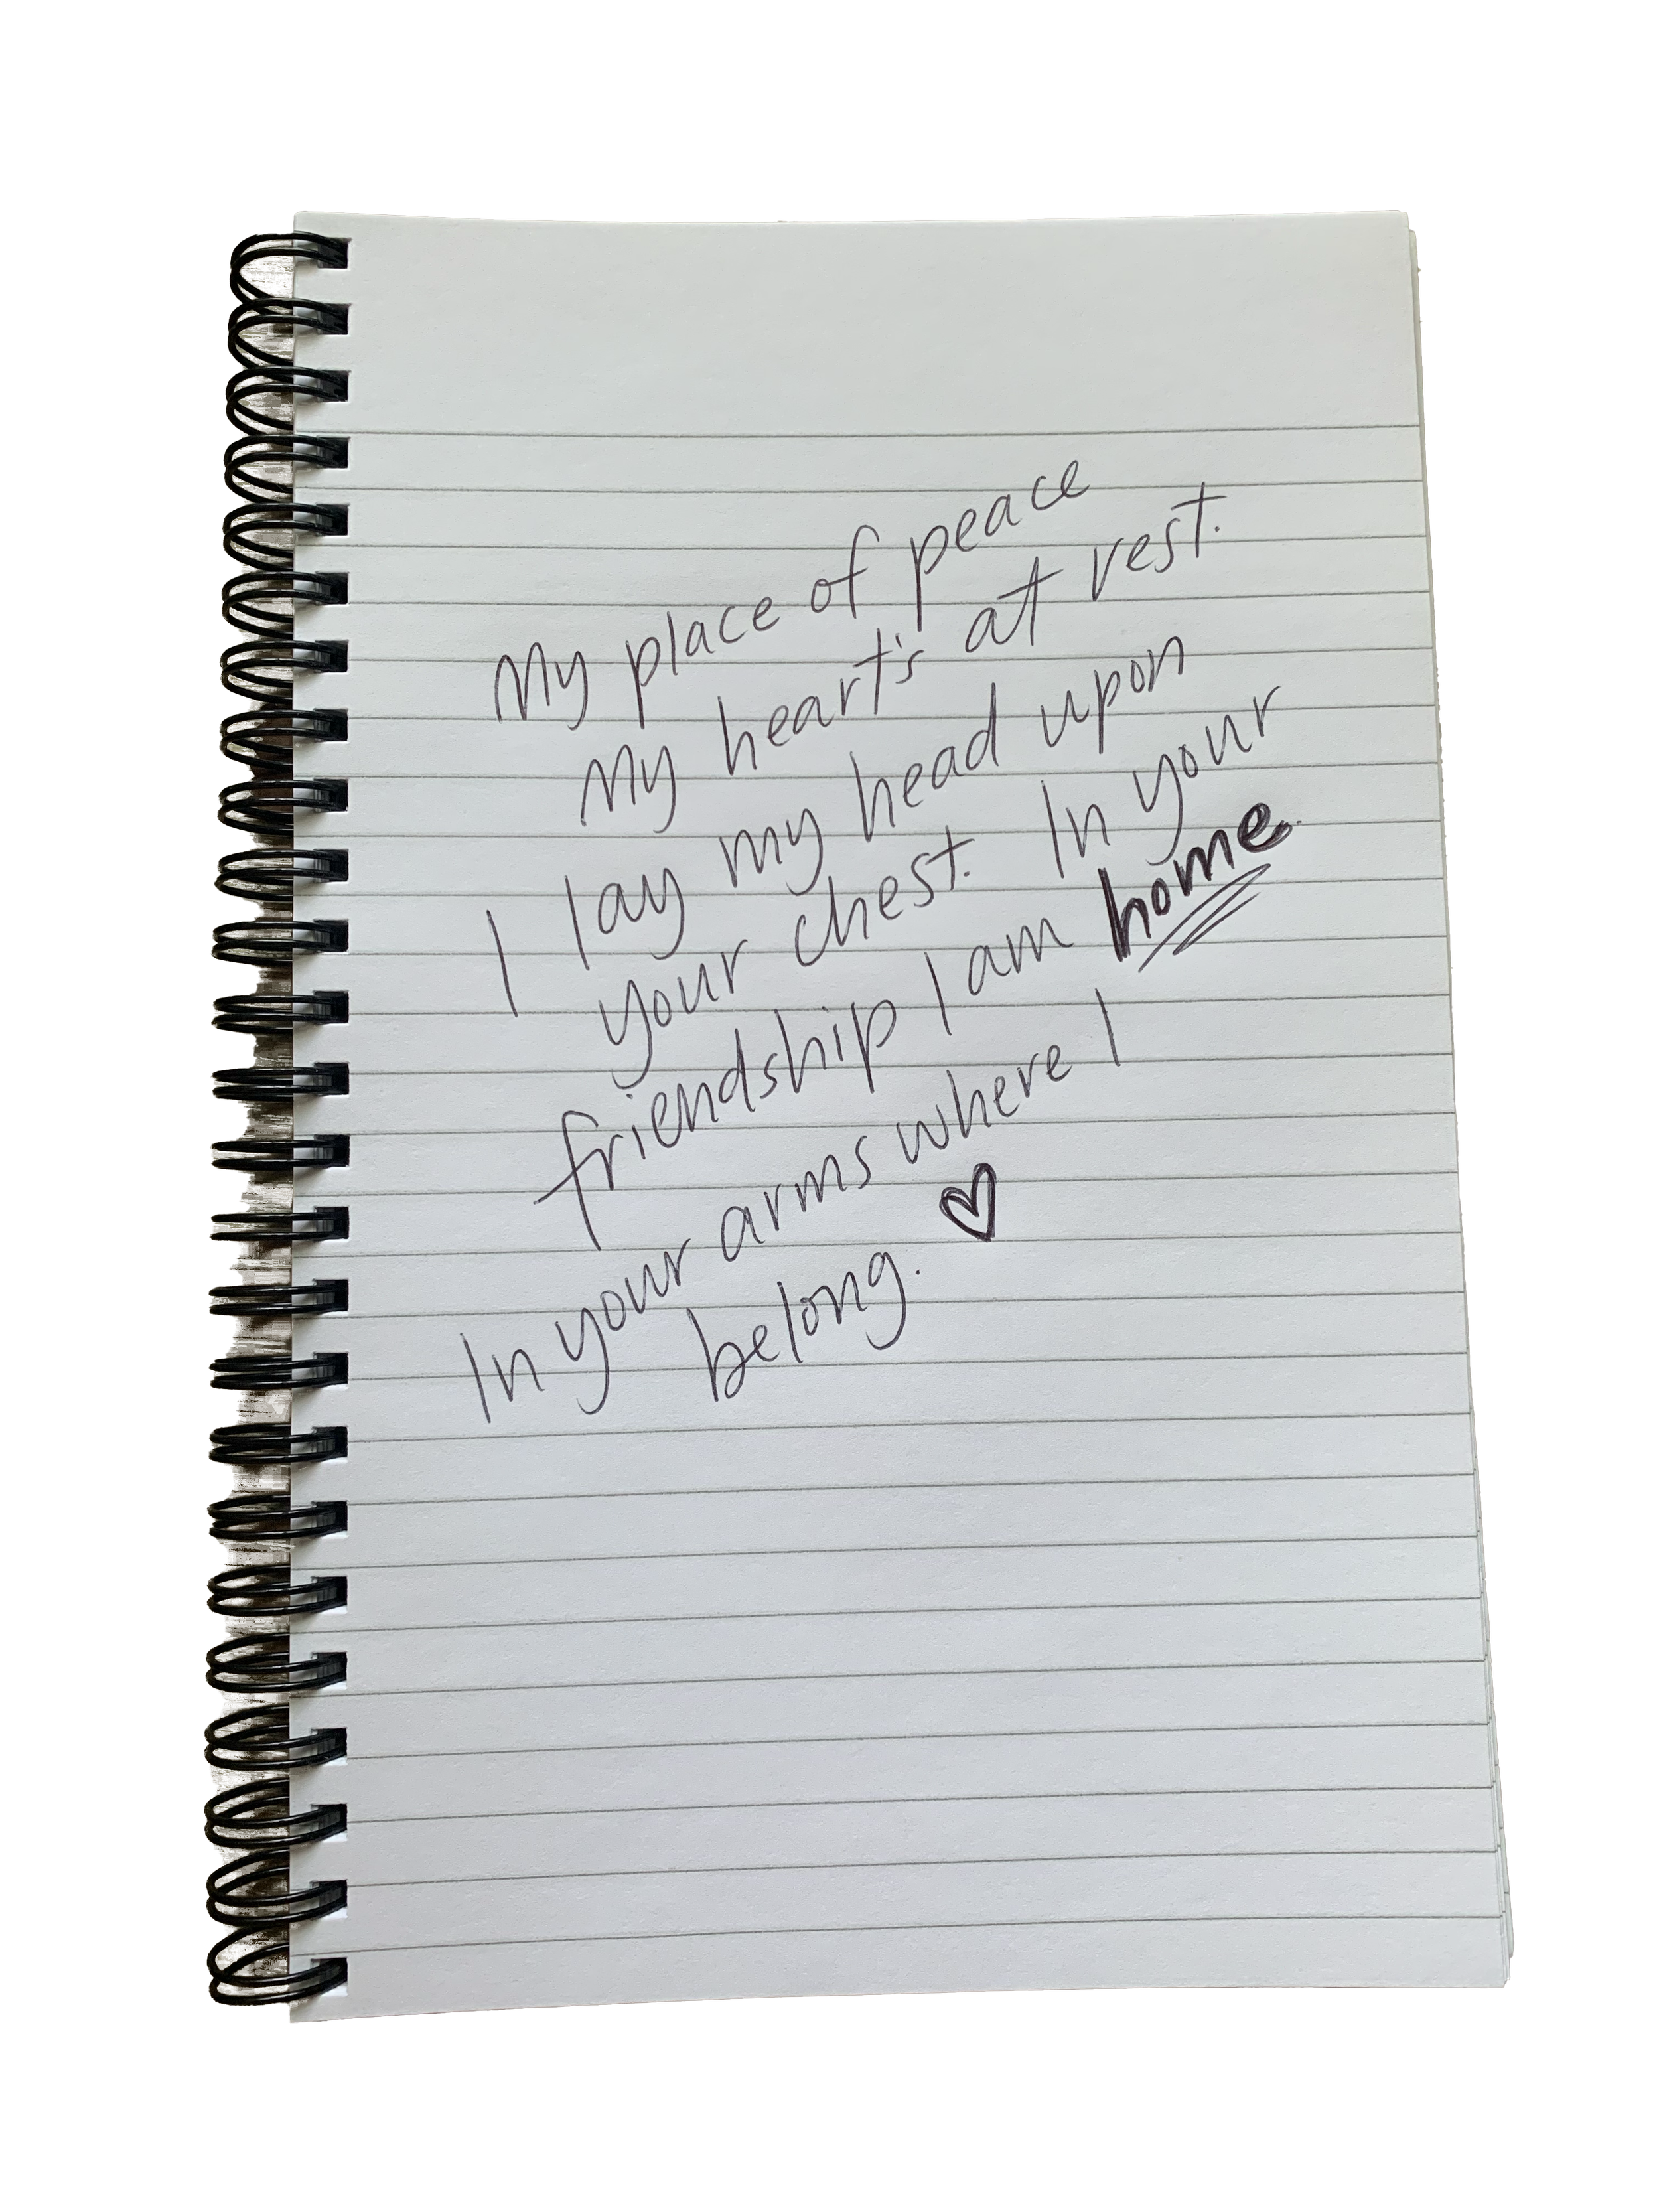 My place of peace
My heart's at rest.
I lay my head upon
your chest. In your
friendship I am home.
In your arms where I
belong. ♡